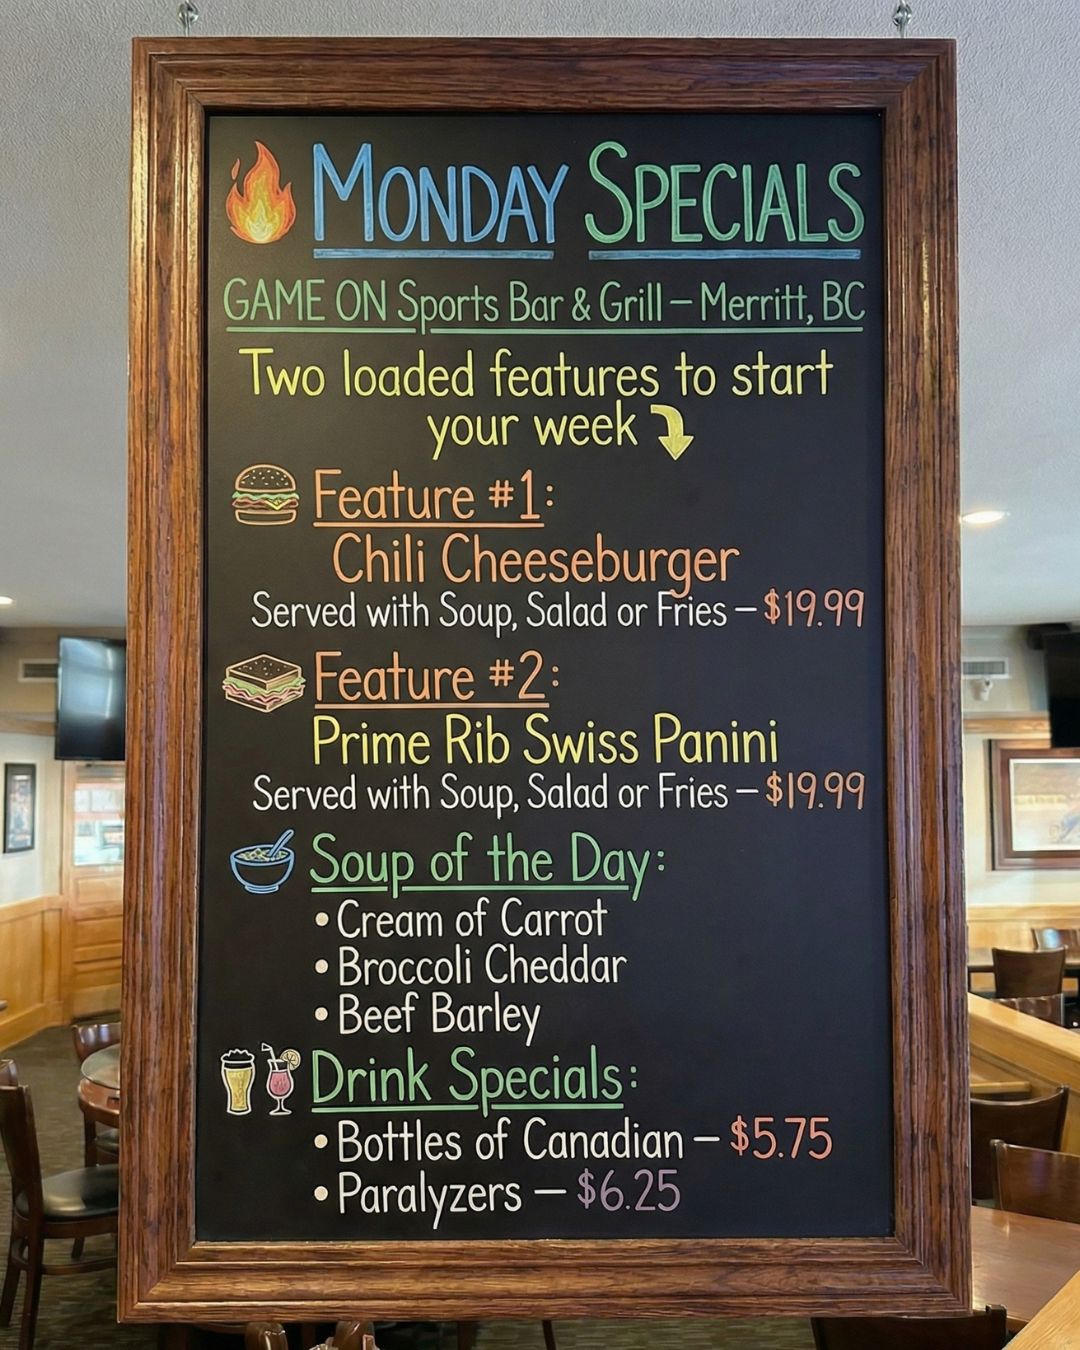 MONDAY SPECIALS
GAME ON Sports Bar & Grill – Merritt, BC
Two loaded features to start
your week
Feature #1:
Chili Cheeseburger
Served with Soup, Salad or Fries – $19.99
Feature #2:
Prime Rib Swiss Panini
Served with Soup, Salad or Fries – $19.99
Soup of the Day:
• Cream of Carrot
• Broccoli Cheddar
• Beef Barley
Drink Specials:
• Bottles of Canadian – $5.75
• Paralyzers – $6.25